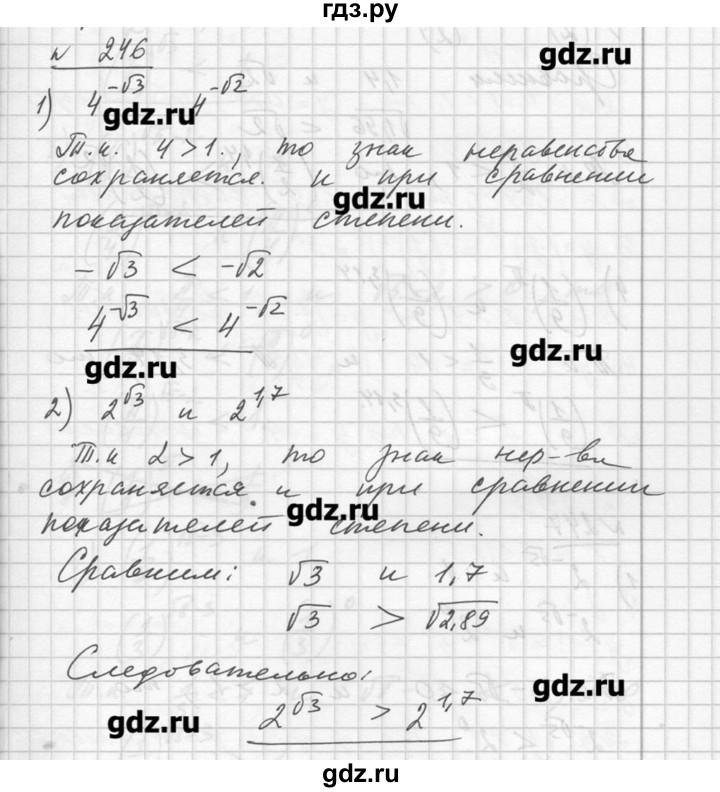 гдз.ру
№ 246
gdz.ru
1) 4^{-√3} 4^{-√2}
gdz.ru
Т.к. 4 > 1, то знак неравенства
сохраняется. и при сравнении
gdz.ru
показателей степени.
-√3 < -√2
4^{-√3} < 4^{-√2}
gdz.ru
gdz.ru
2) 2^{√3} и 2^{1,7}
Т.к 2 > 1, то знак нер-ва
сохраняется и при сравнении
gdz.ru
показателей степени.
Сравним: √3 и 1,7
√3 > √2,89
Следовательно:
gdz.ru
gdz.ru
2^{√3} > 2^{1,7}
gdz.ru